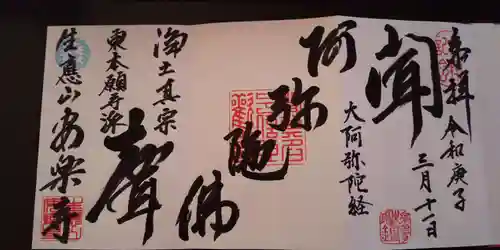 奉拝 令和庚子
三月十一日
聞
大阿弥陀経
阿弥陀佛
浄土真宗
聲
東本願寺派
生應山安楽寺